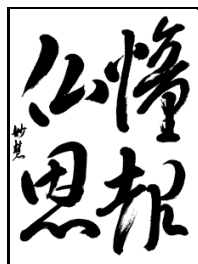 憧報
仏恩
妙慧